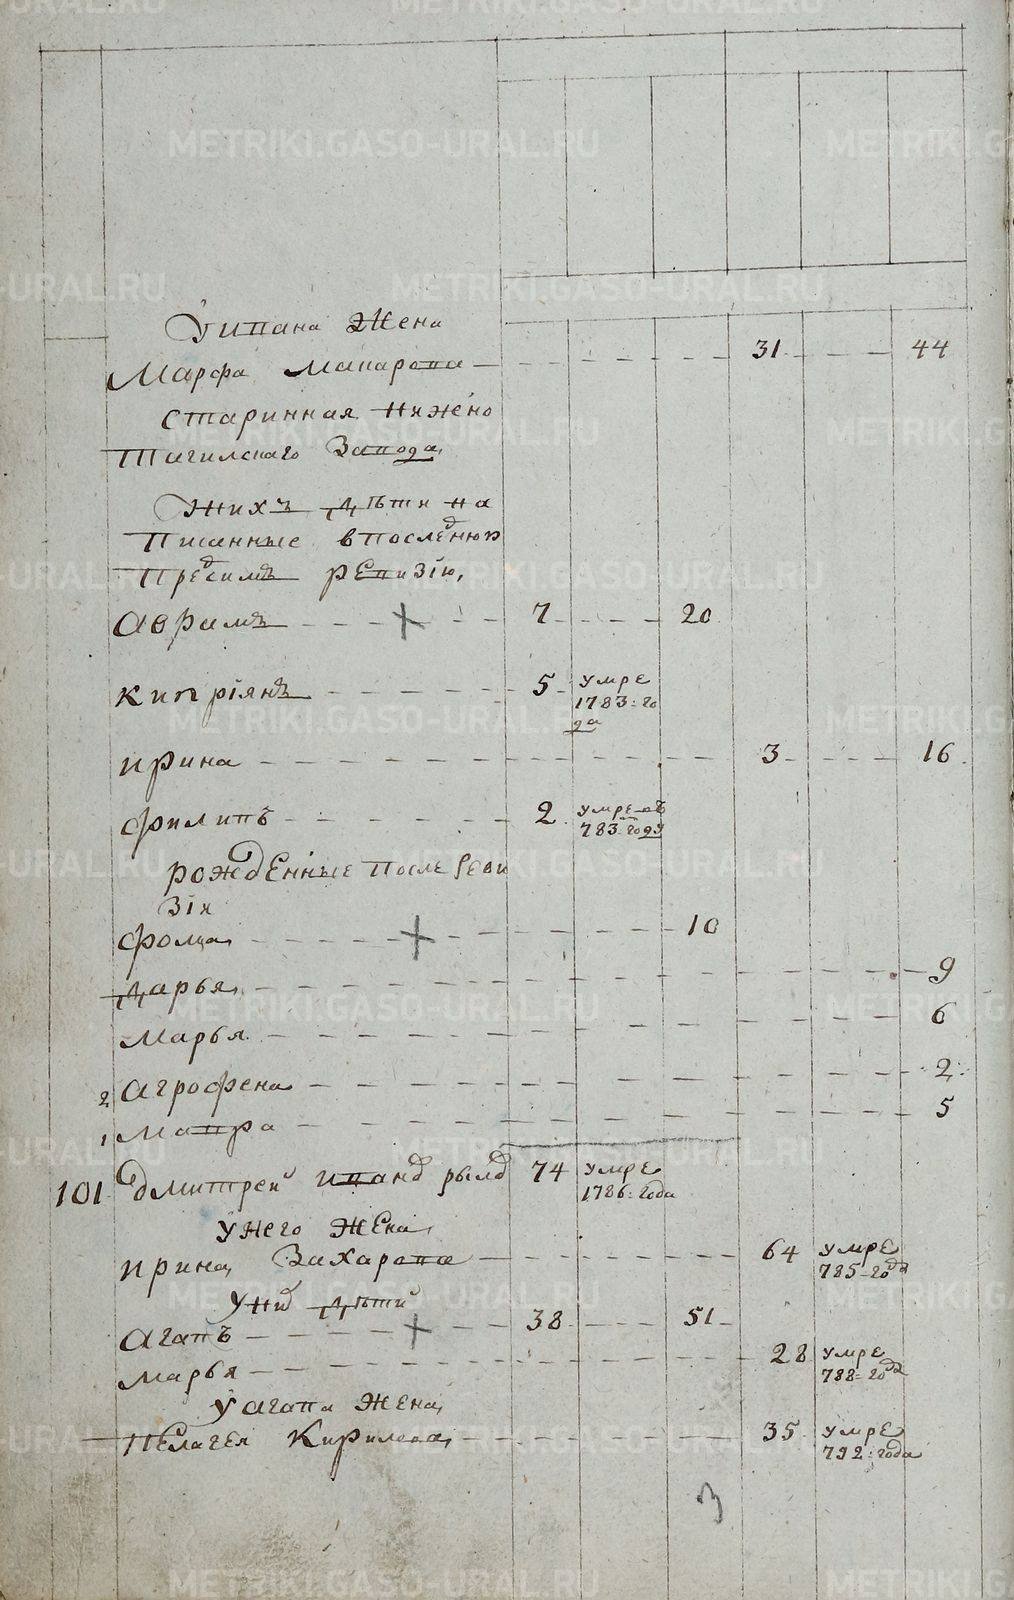 У ивана жена
Марфа Макарова 31 44
старинная нижено
Тагилскаго Завода
У них дети на
писанные в последнюю
пред сим ревизiю,
Авраамъ 7 20
Киприянъ 5 умре
1783: го
да
ирина 3 16
филипъ 2 умре въ
783 году
рожденные после реви
зiи
фома 10
дарья 9
Марья 6
2 Агрофена 2
1 Мавра 5
101 Дмитреи иванов 74 умре
1786: года
у него жена
ирина Захарова 64 умре
785 года
у них дети
Агапъ 38 51
марья 28 умре
788 года
у агапа жена
пелагея Кирилова 35 умре
792: года
METRIKI.GASO-URAL.RU